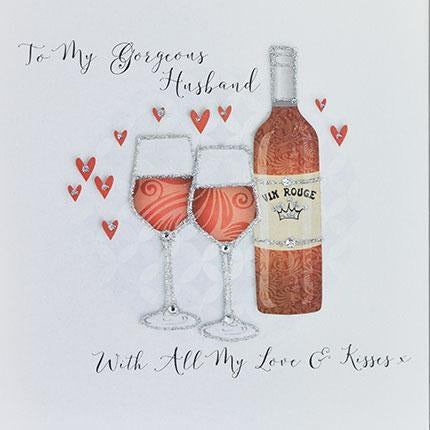 To My Gorgeous
Husband
VIN ROUGE
With All My Love & Kisses x